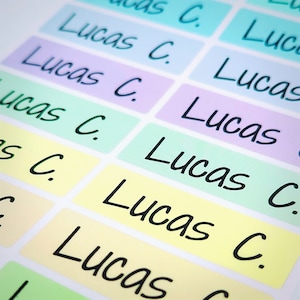 Lucas C.
Lucas C.
Lucas C.
Lucas
Lucas C.
Lucas
Lucas C.
Lucas C.
C.
Lucas C.
Lucas